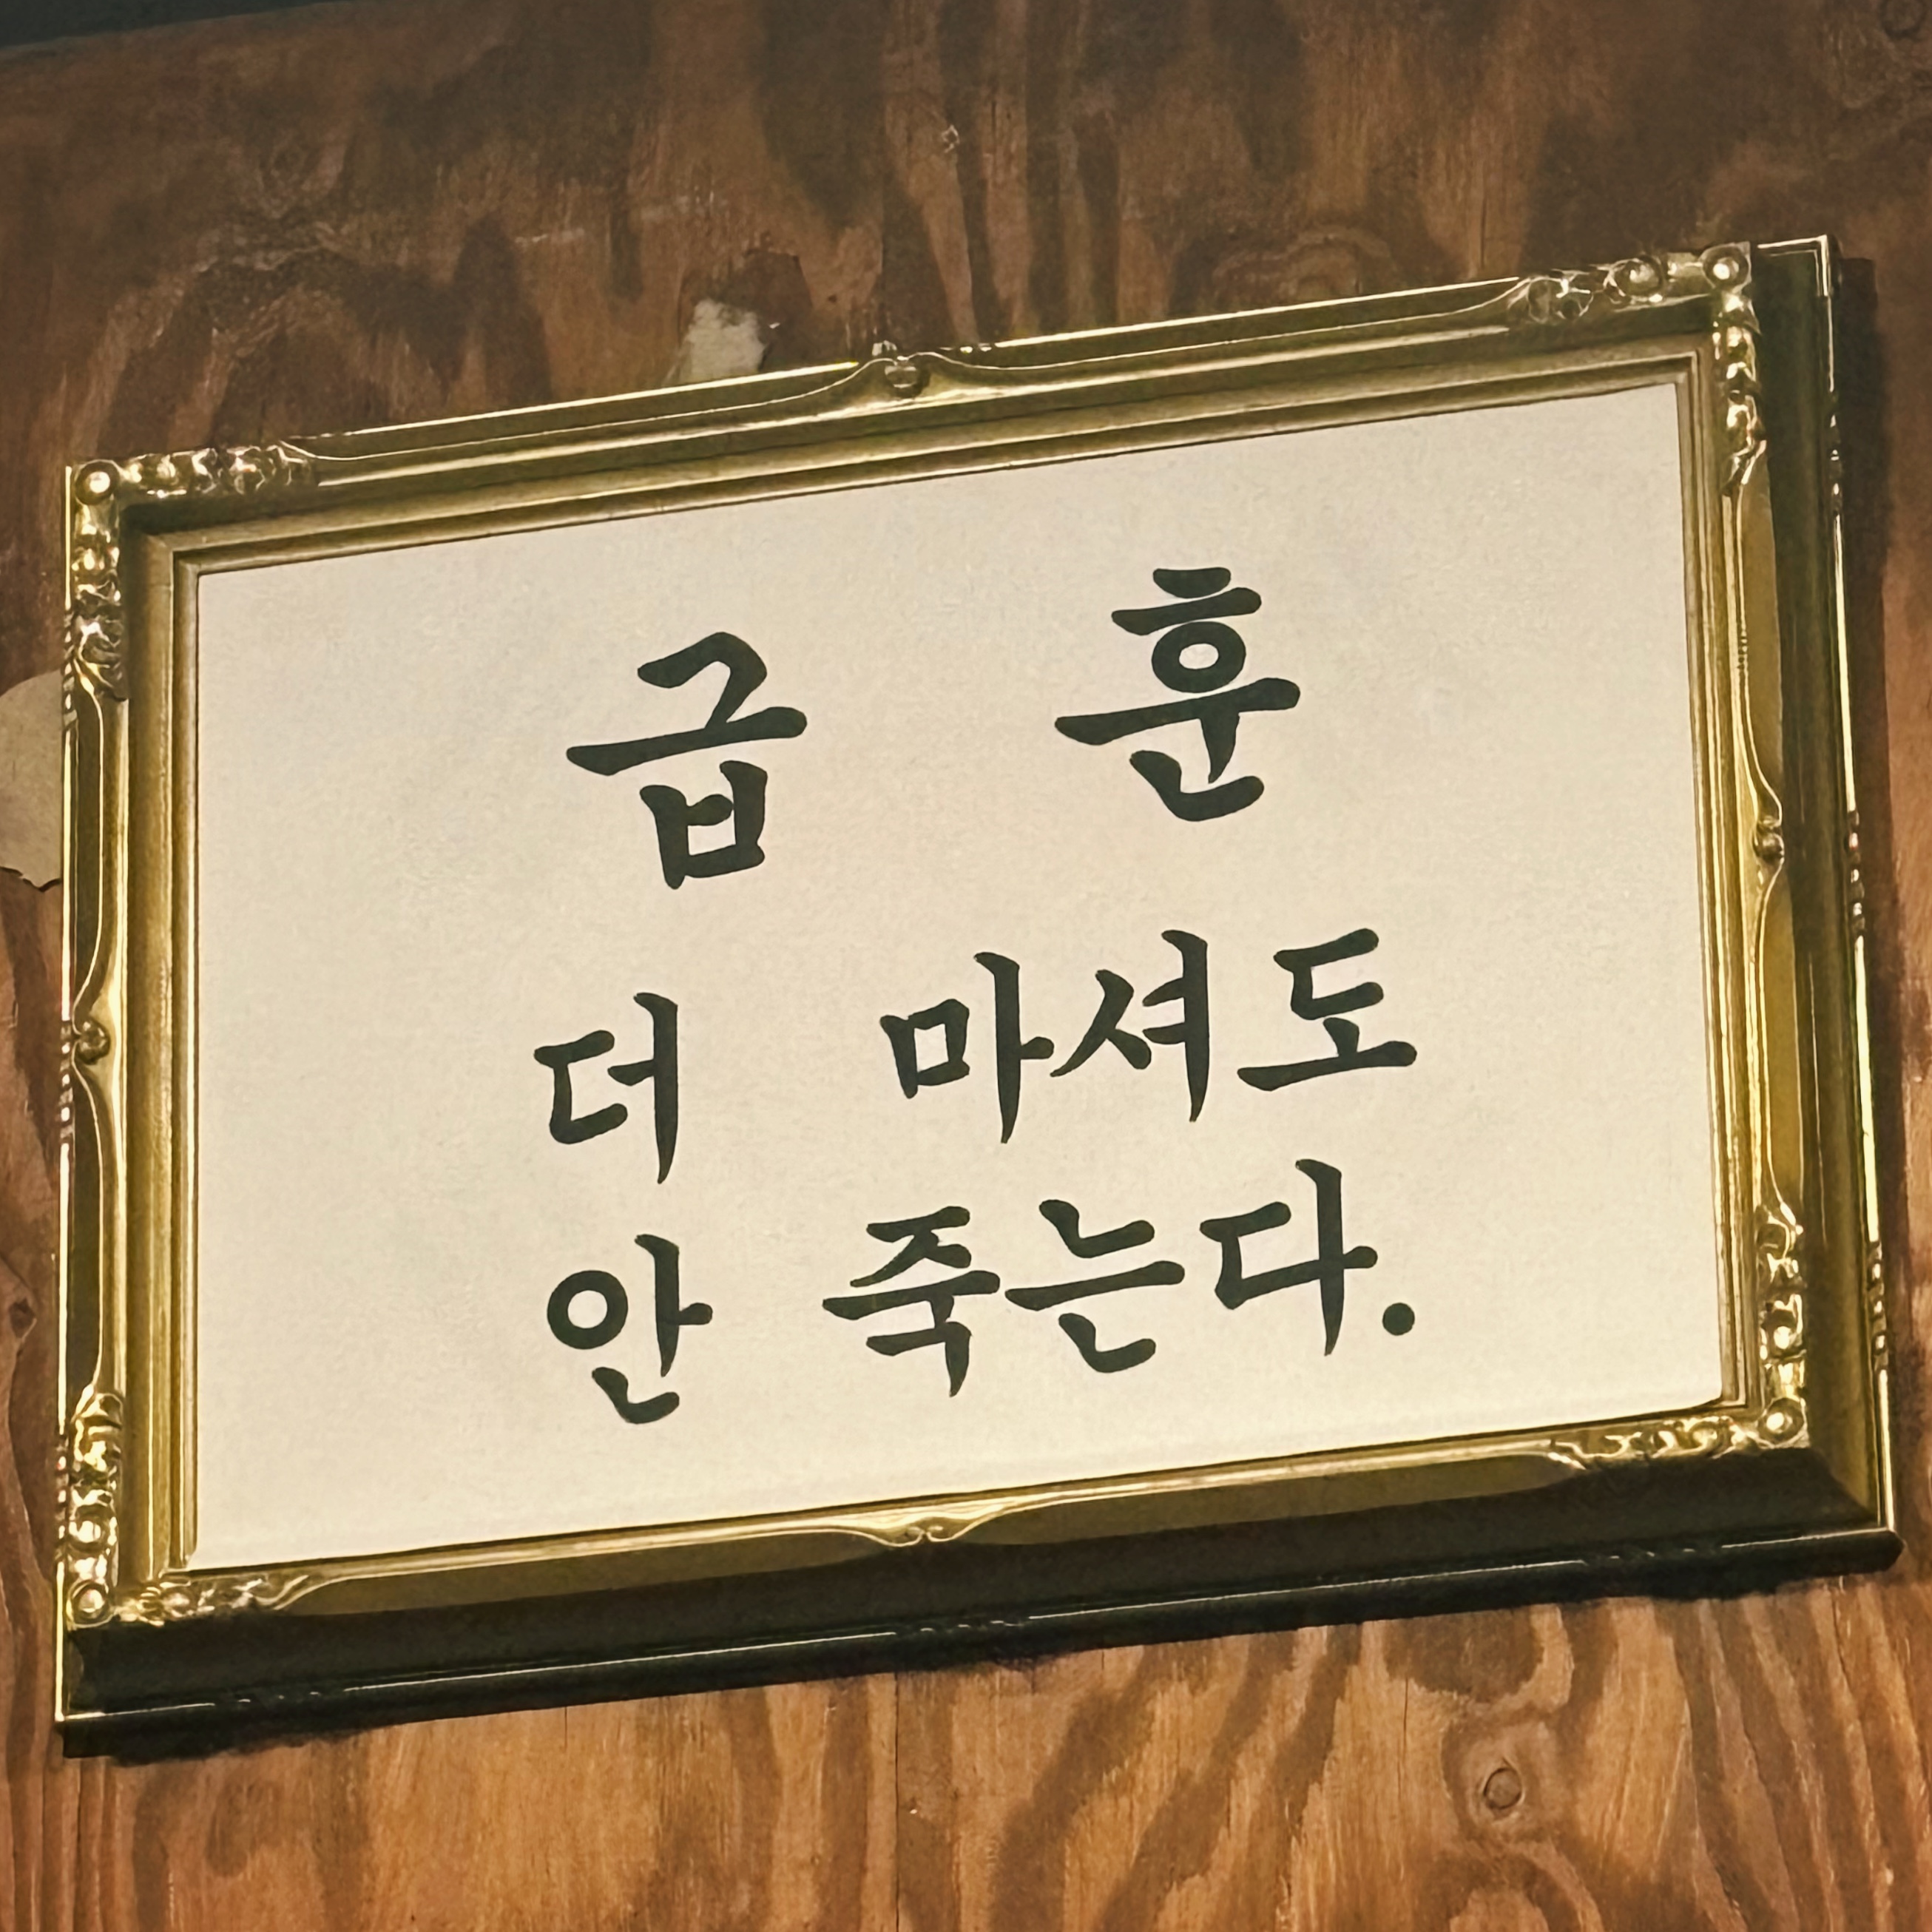 급 훈
더 마셔도
안 죽는다.